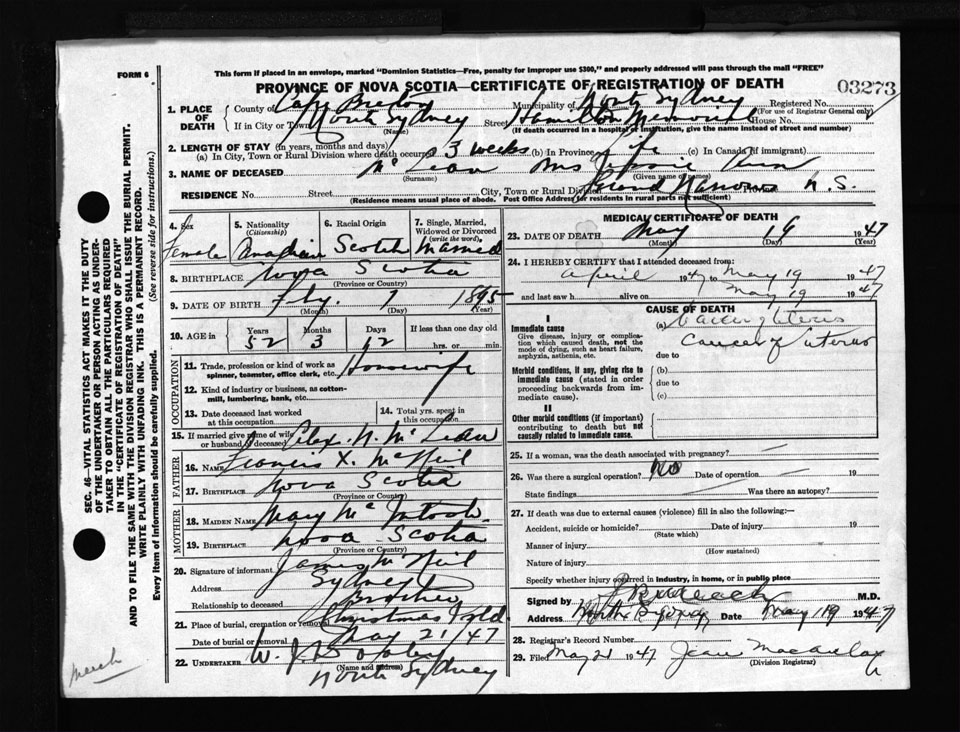 FORM 6
This form if placed in an envelope, marked "Dominion Statistics—Free, penalty for improper use $300," and properly addressed will pass through the mail "FREE"
PROVINCE OF NOVA SCOTIA—CERTIFICATE OF REGISTRATION OF DEATH
03273
1. PLACE OF DEATH
County of Cape Breton Municipality of North Sydney Registered No.
(For use of Registrar General only)
If in City or Town North Sydney Street Hamilton Memorial House No.
(Name) (If death occurred in a hospital or institution, give the name instead of street and number)
2. LENGTH OF STAY (in years, months and days)
(a) In City, Town or Rural Division where death occurred 3 weeks (b) In Province Life (c) In Canada (if immigrant)
3. NAME OF DECEASED Mc Lean Mrs Jessie Ann
(Surname) (Given name or names)
RESIDENCE No. Street City, Town or Rural Division Grand Narrows N.S.
(Residence means usual place of abode. Post Office Address for residents in rural parts not sufficient)
4. Sex
Female
5. Nationality
(Citizenship)
Canadian
6. Racial Origin
Scotch
7. Single, Married, Widowed or Divorced
(write the word)
Married
8. BIRTHPLACE Nova Scotia
(Province or Country)
9. DATE OF BIRTH Feby. 7 1895
(Month) (Day) (Year)
10. AGE in
Years Months Days If less than one day old
52 3 12 hrs. or min.
OCCUPATION
11. Trade, profession or kind of work as spinner, teamster, office clerk, etc. Housewife
12. Kind of industry or business, as cotton-mill, lumbering, bank, etc.
13. Date deceased last worked at this occupation
14. Total yrs. spent in this occupation
15. If married give name of wife or husband of deceased Alex. N. Mc Lean
FATHER
16. NAME Francis X. McNeil
17. BIRTHPLACE Nova Scotia
(Province or Country)
MOTHER
18. MAIDEN NAME Mary McIntosh
19. BIRTHPLACE Nova Scotia
(Province or Country)
20. Signature of informant James McNeil
Address Sydney
Relationship to deceased Brother
21. Place of burial, cremation or removal Christmas Isld.
Date of burial or removal May 21/47
22. UNDERTAKER W. J.
(Name and address)
North Sydney
MEDICAL CERTIFICATE OF DEATH
23. DATE OF DEATH May 19 1947
(Month) (Day) (Year)
24. I HEREBY CERTIFY that I attended deceased from:
April 1947 to May 19 1947
and last saw h alive on May 19 1947
CAUSE OF DEATH
I
Immediate cause
Give disease, injury or complication which caused death, not the mode of dying, such as heart failure, asphyxia, asthenia, etc.
(a)
Cancer of uterus
due to
Morbid conditions, if any, giving rise to immediate cause (stated in order proceeding backwards from immediate cause).
(b)
due to
(c)
II
Other morbid conditions (if important) contributing to death but not causally related to immediate cause.
25. If a woman, was the death associated with pregnancy?
26. Was there a surgical operation? No Date of operation 19
State findings Was there an autopsy?
27. If death was due to external causes (violence) fill in also the following:—
Accident, suicide or homicide? Date of injury 19
(State which)
Manner of injury
(How sustained)
Nature of injury
Specify whether injury occurred in industry, in home, or in public place
Signed by M.D.
Address North Sydney Date May 19 1947
28. Registrar's Record Number
29. Filed May 21 1947 Jean
(Division Registrar)
SEC. 46—VITAL STATISTICS ACT MAKES IT THE DUTY
OF THE UNDERTAKER OR PERSON ACTING AS UNDER-
TAKER TO OBTAIN ALL THE PARTICULARS REQUIRED
IN THE "CERTIFICATE OF REGISTRATION OF DEATH"
AND TO FILE THE SAME WITH THE DIVISION REGISTRAR WHO SHALL ISSUE THE BURIAL PERMIT.
WRITE PLAINLY WITH UNFADING INK. THIS IS A PERMANENT RECORD.
Every item of information should be carefully supplied. (See reverse side for instructions.)